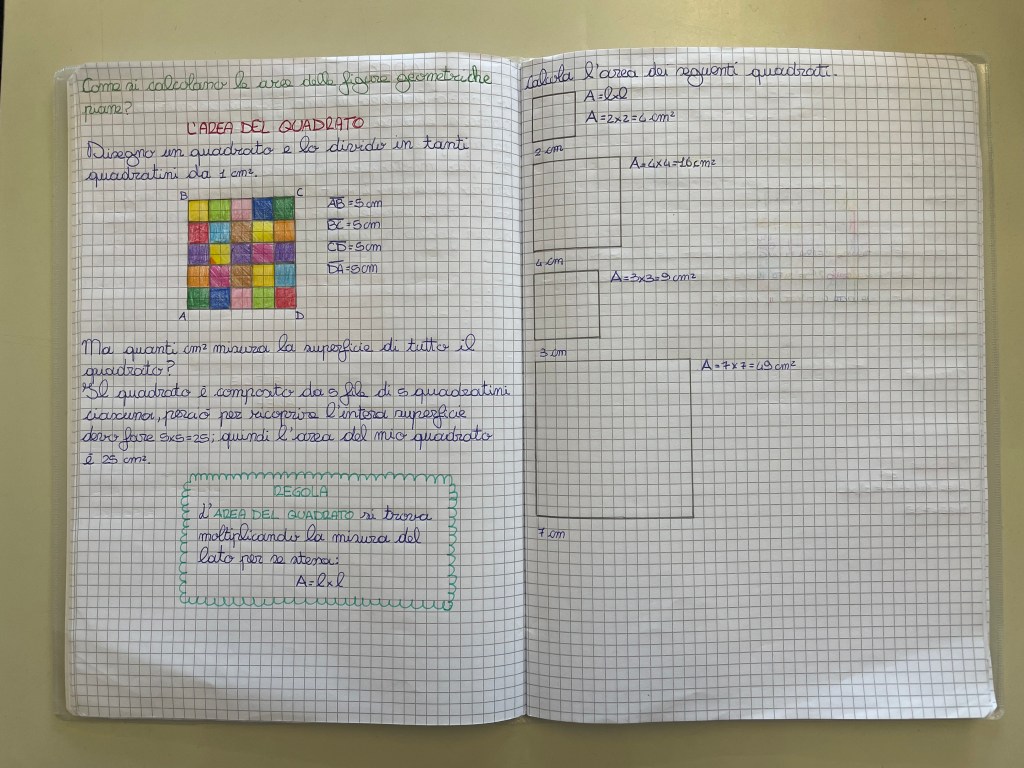 Come si calcolano le aree delle figure geometriche
piane?
L'AREA DEL QUADRATO
Disegno un quadrato e lo divido in tanti
quadratini da 1 cm².
B C
A D
AB=5cm
BC=5cm
CD=5cm
DA=5cm
Ma quanti cm² misura la superficie di tutto il
quadrato?
Il quadrato è composto da 5 file di 5 quadratini
ciascuna, perciò per ricoprire l'intera superficie
devo fare 5x5=25; quindi l'area del mio quadrato
è 25 cm².
REGOLA
L'AREA DEL QUADRATO si trova
moltiplicando la misura del
lato per se stessa:
A=lxl
Calcola l'area dei seguenti quadrati.
A=lxl
A=2x2=4cm²
2 cm
A=4x4=16cm²
4 cm
A=3x3=9cm²
3 cm
A=7x7=49cm²
7 cm